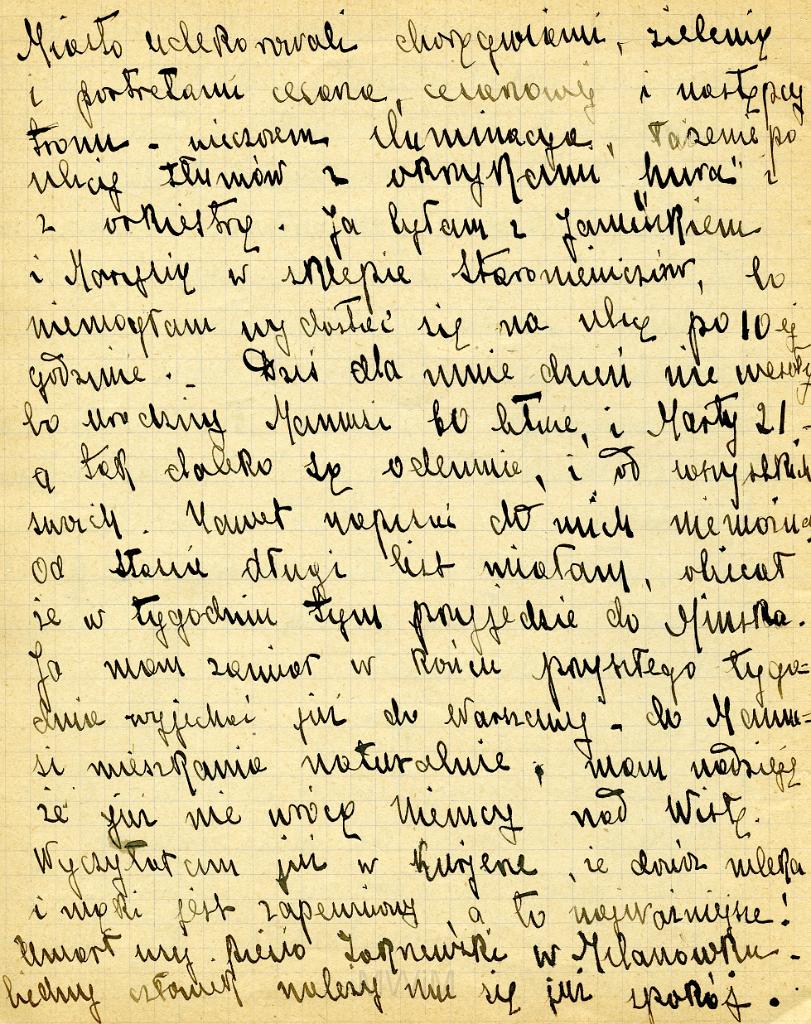 Miasto udekorowali chorągwiami, zielenią
i portretami cesarza, cesarzowej i następcy
tronu - wieczorem iluminacya, łażenie po
ulicy tłumów z okrzykami "hura" i
z orkiestrą. Ja byłam z
i Marylią w sklepie bo
niemogłam wydostać się na ulicę po 10ej
godzinie. - Dziś dla mnie dzień nie wesoły
bo urodziny Mamusi 60 letnie, i Marty 21 -
a tak daleko są odemnie, i od wszystkich
swoich. Nawet napisać do nich niemożna
Od Stasia długi list miałam, obiecał
że w tygodniu tym przyjedzie do Mińska.
Ja mam zamiar w końcu przyszłego tygo=
dnia wyjechać już do Warszawy - do Mamu=
si mieszkania naturalnie, mam nadzieję
że już nie wrócą Niemcy nad Wisłę.
Wyczytałam już w Kurjerze, że dowóz mleka
i mąki jest zapewniony, a to najważniejsze!
Umarł w Milanówku -
biedny człowiek należy mu się już spokój.